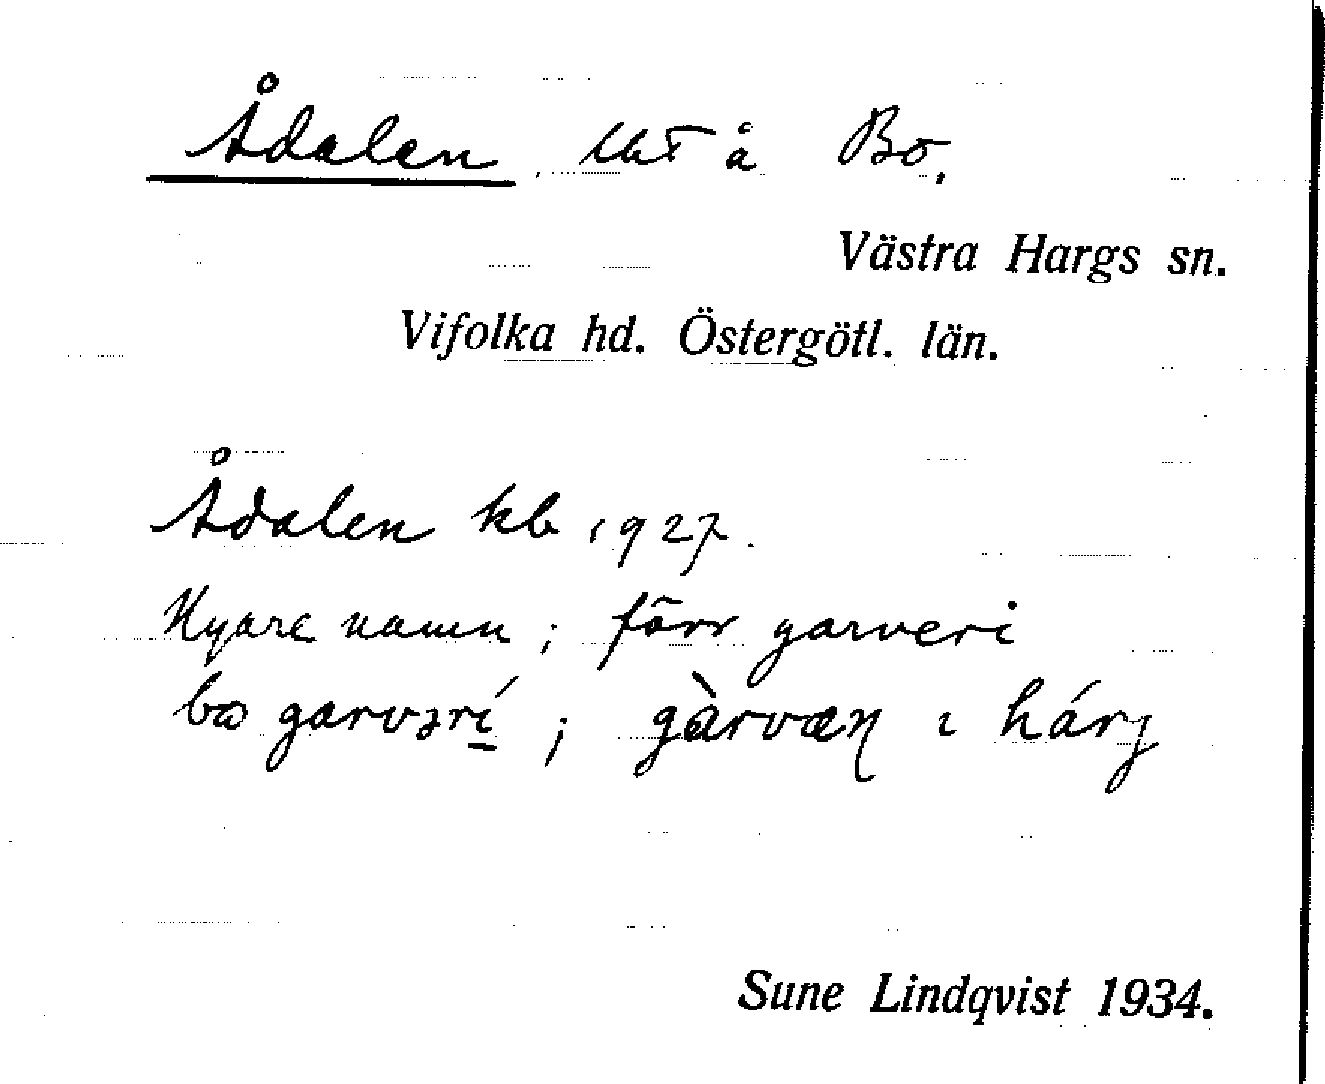 Ådalen, lht å Bo.
Västra Hargs sn.
Vifolka hd. Östergötl. län.
Ådalen kb 1927.
Nyare namn; förr garveri
bω garvərí; gàrvæɳ ı hárj
Sune Lindqvist 1934.